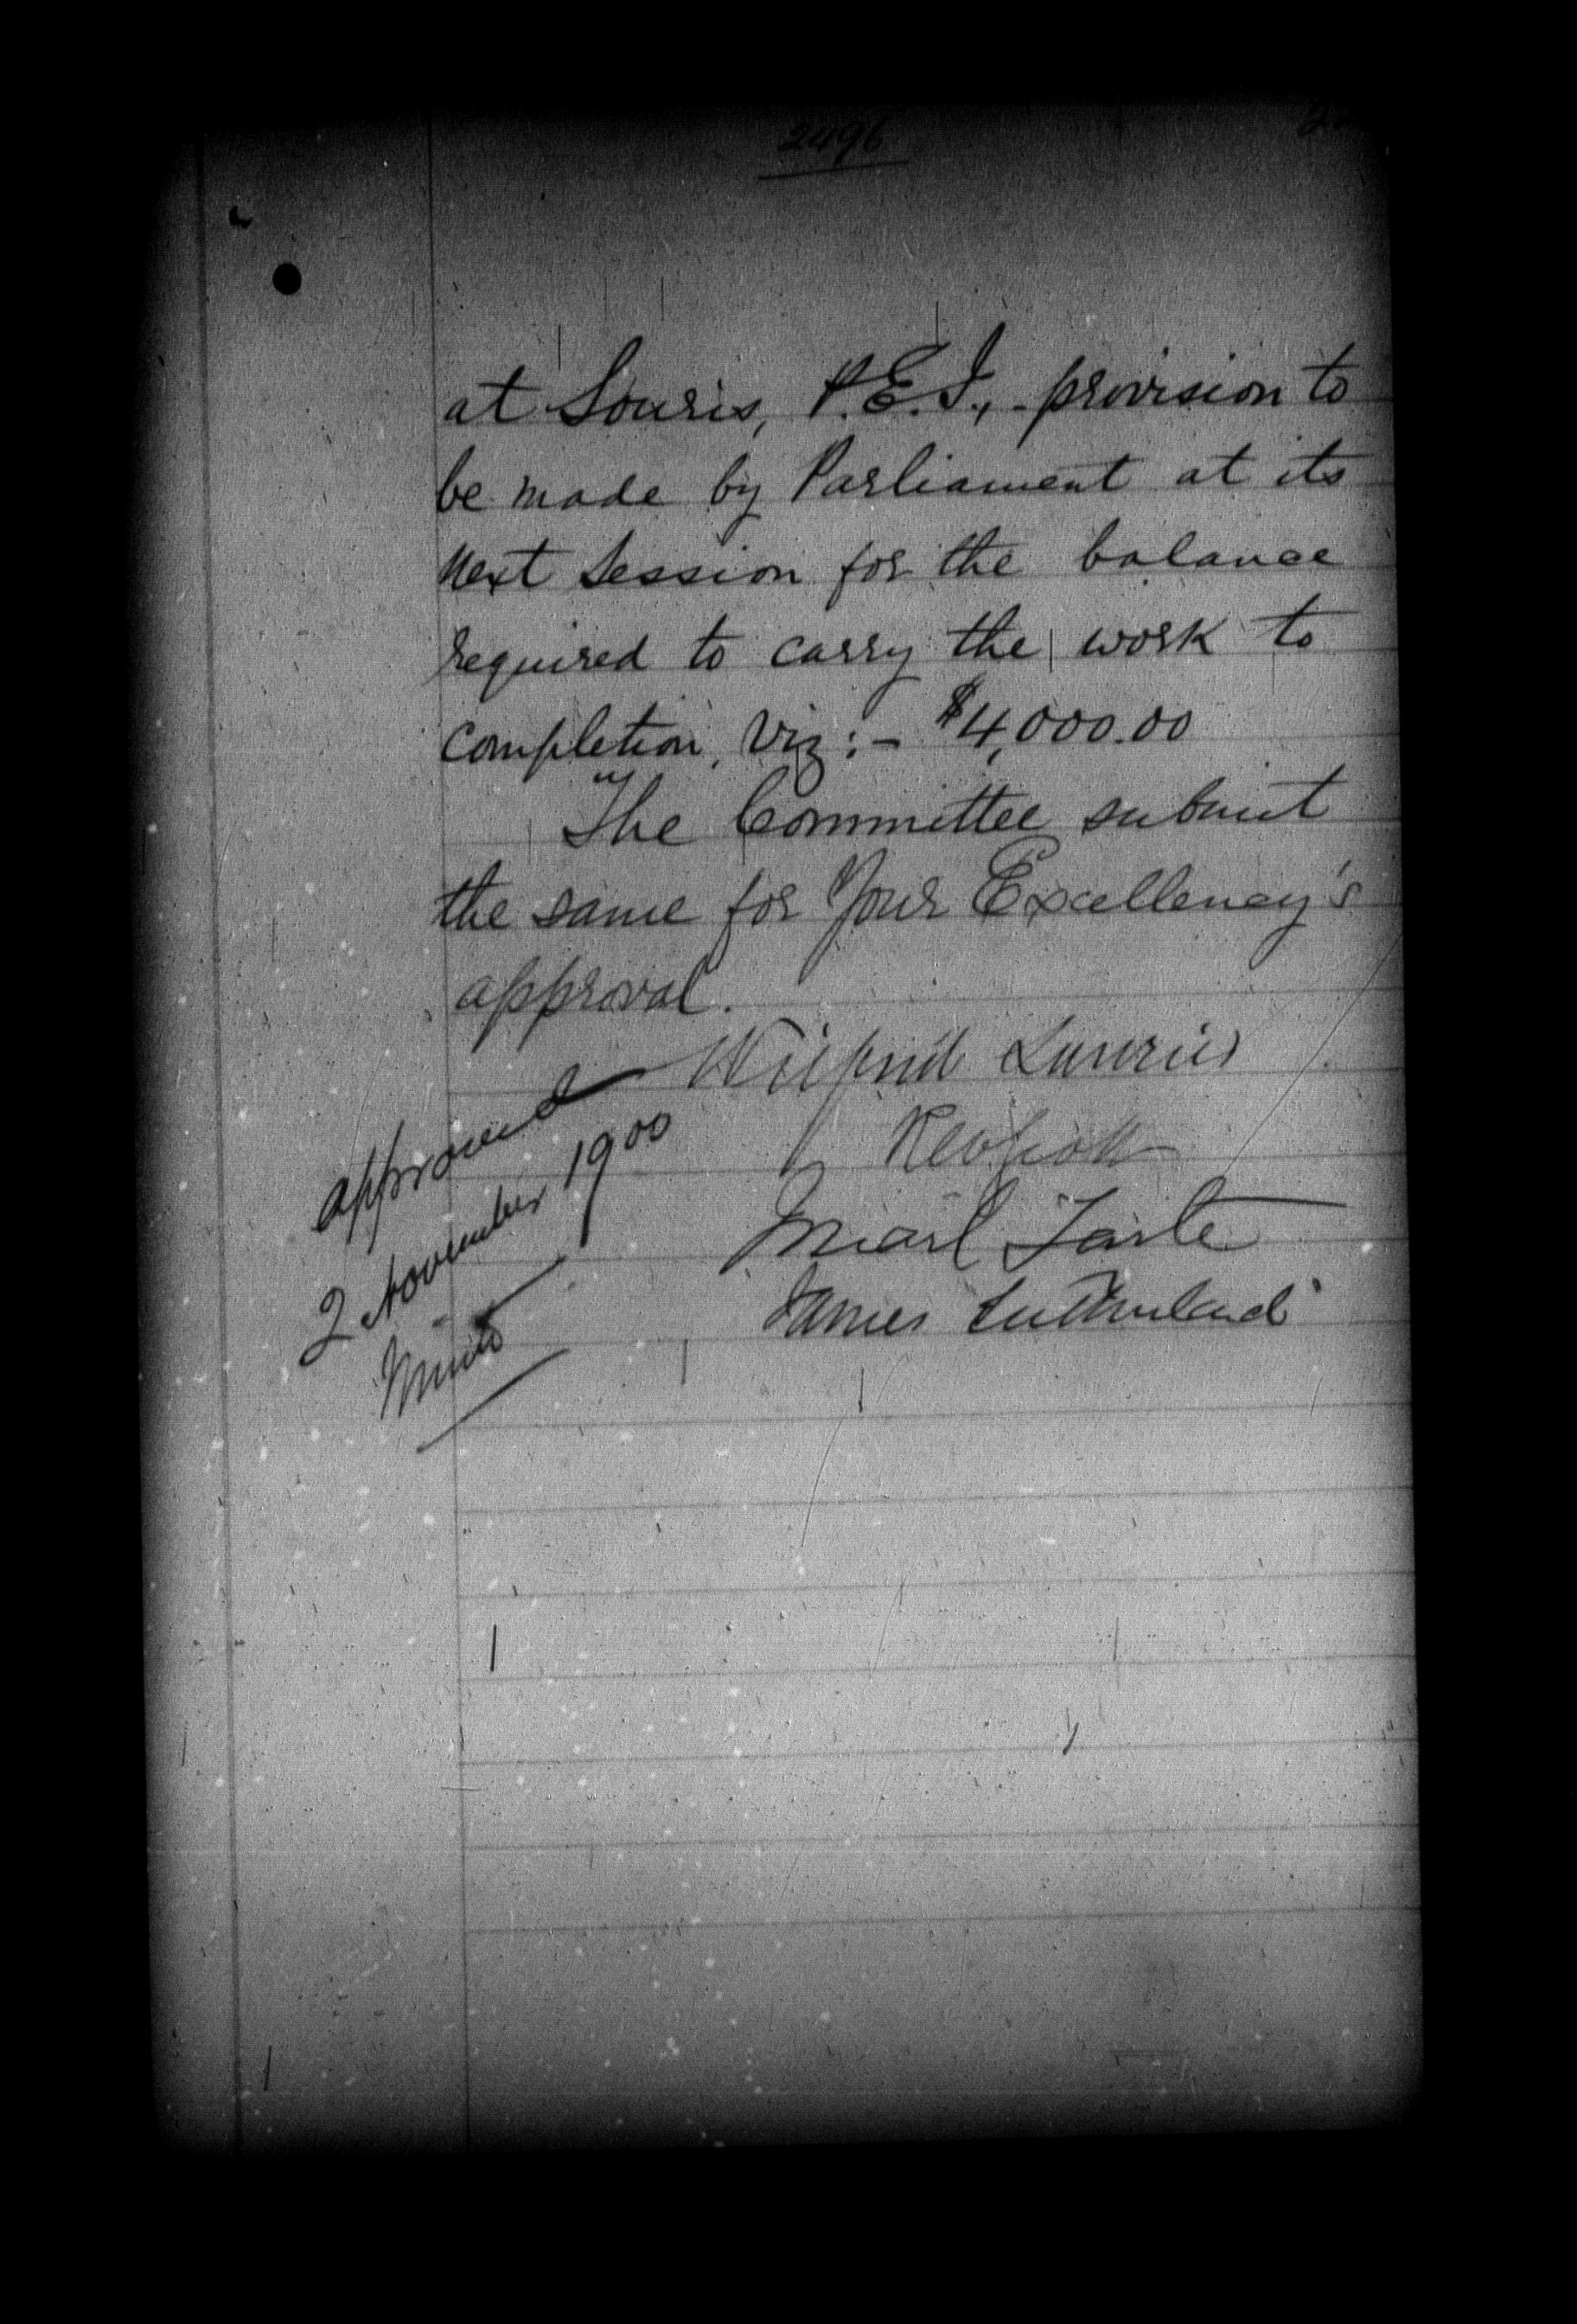 2496
at Souris, P.E.I., - provision to
be made by Parliament at its
next Session for the balance
required to carry the work to
completion, Viz:- $4,000.00
The Committee submit
the same for Your Excellency's
approval.
Wilfrid Laurier
RWScott
J Israel Tarte
James Sutherland
approved
2 November 1900
Minto